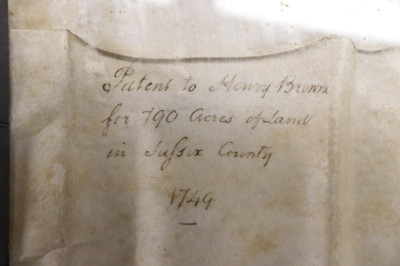 Patent to Henry Brown
for 790 Acres of Land
in Sussex County
1749